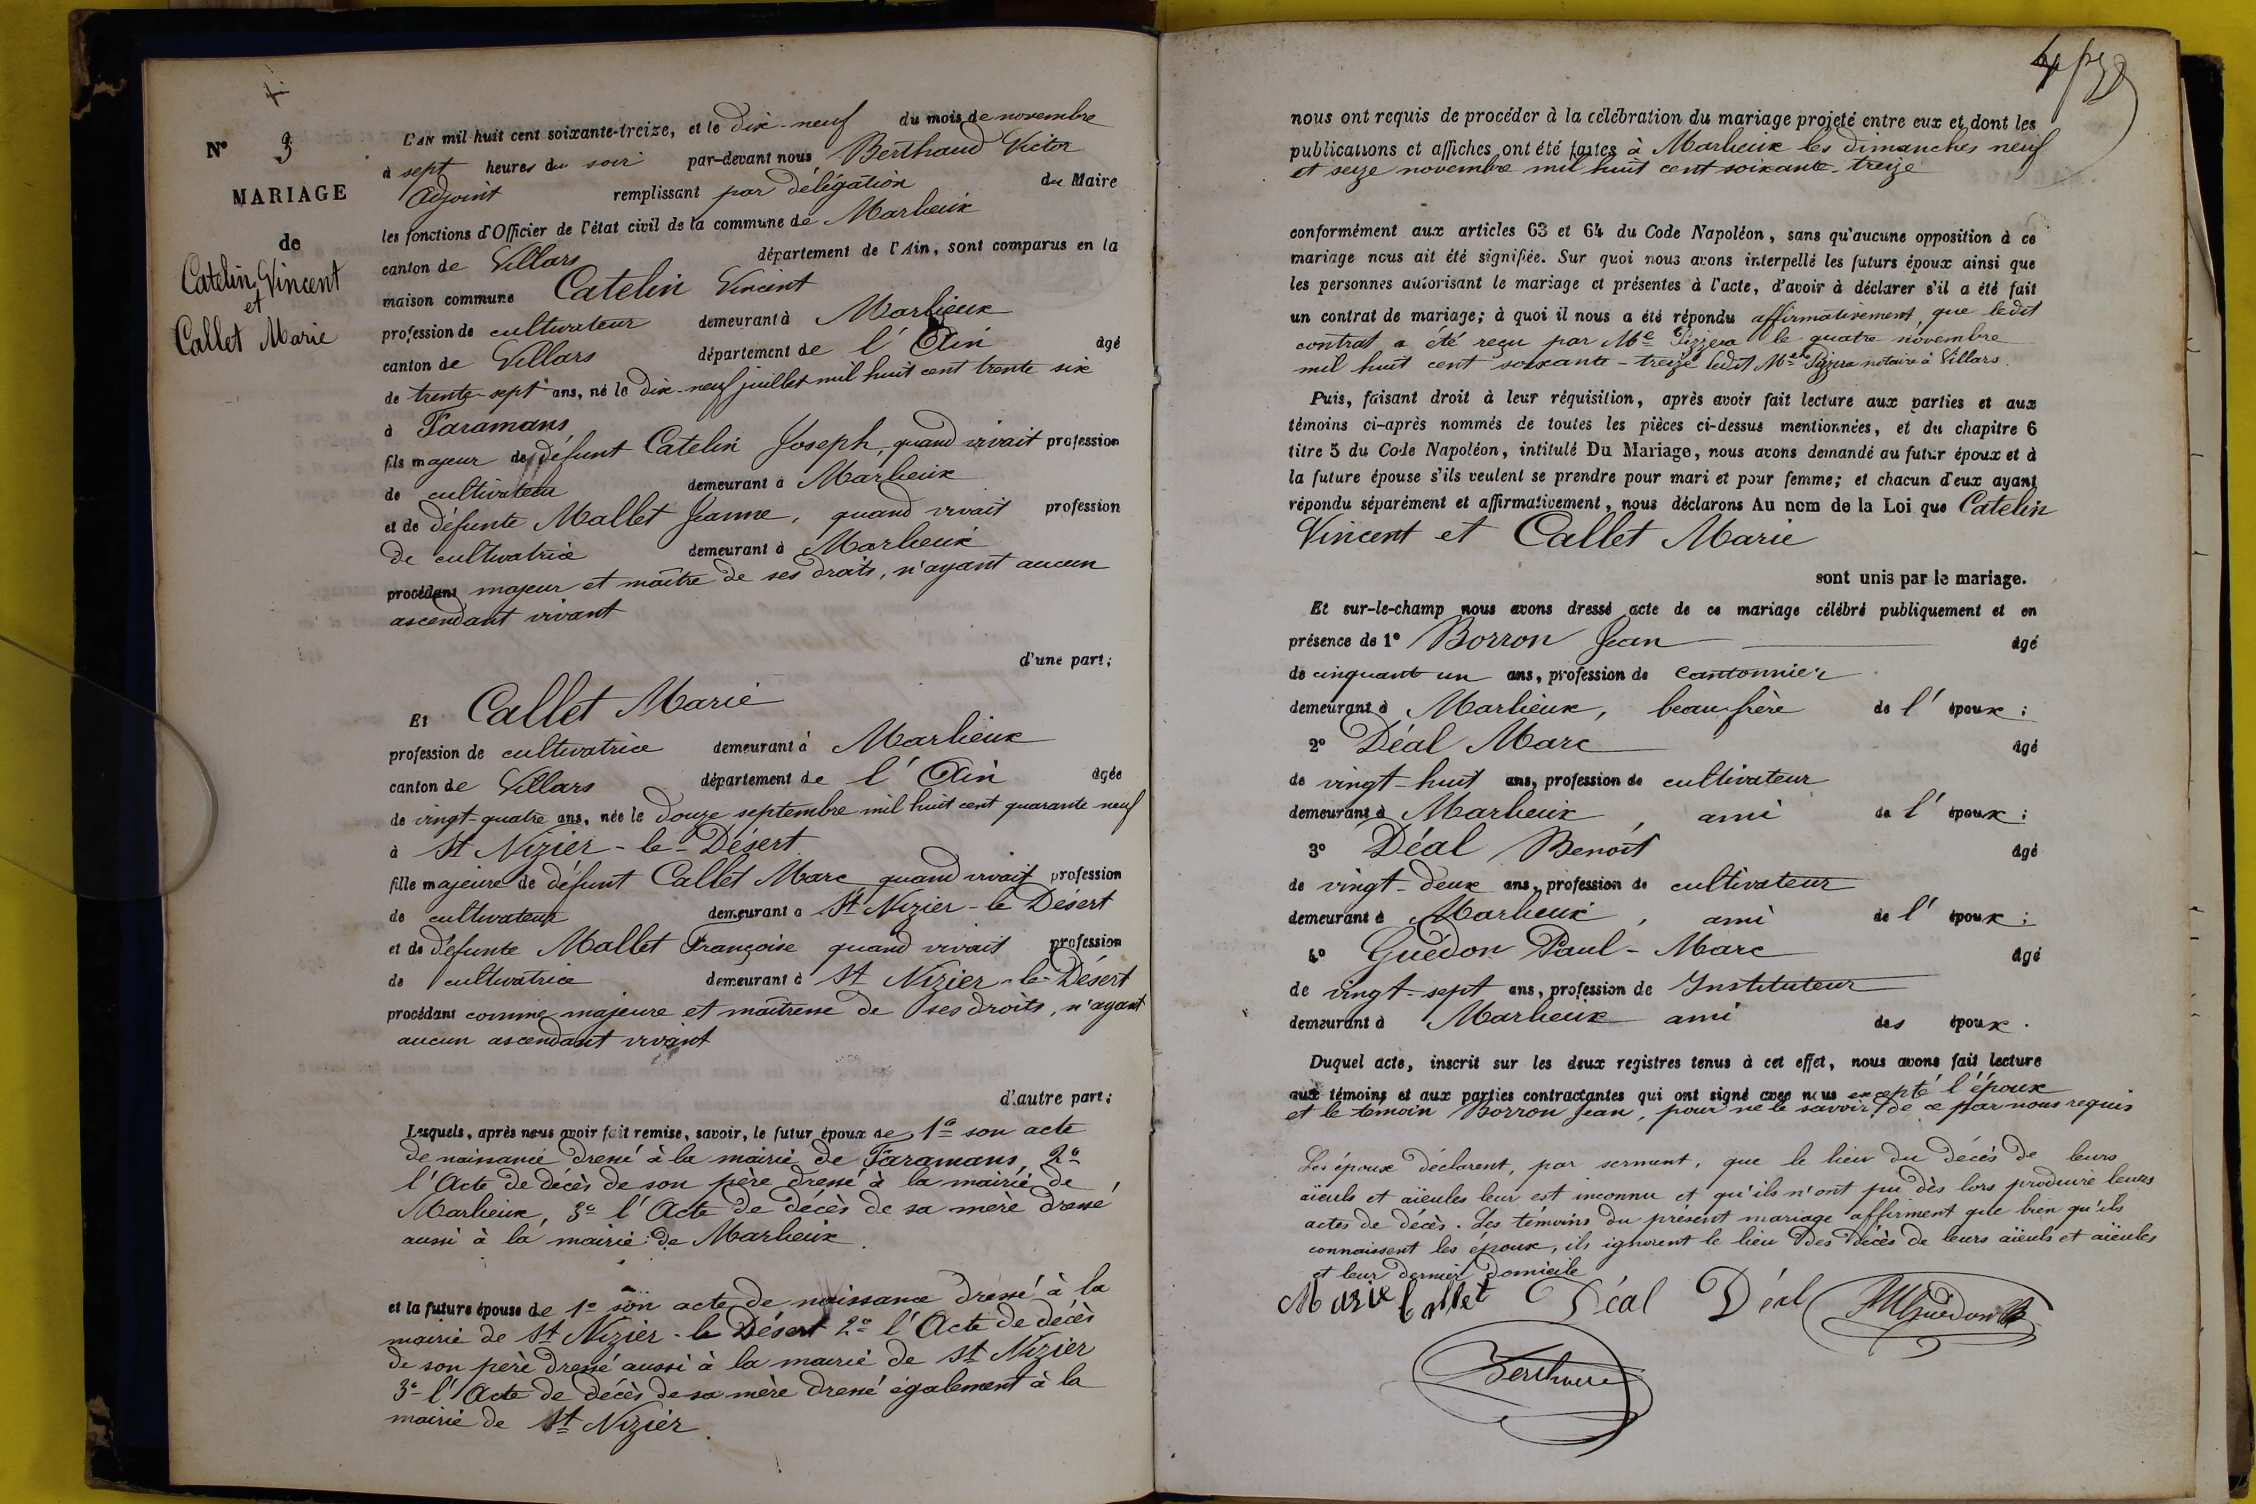 N° 3
MARIAGE
de
Catelin Vincent
et
Callet Marie
L'AN mil huit cent soixante-treize, et le dix-neuf du mois de novembre
à sept heures du soir par-devant nous Berthaud Victor
Adjoint remplissant par délégation du Maire
les fonctions d'Officier de l'état civil de la commune de Marlieux
canton de Villars département de l'Ain, sont comparus en la
maison commune Catelin Vincent
profession de cultivateur demeurant à Marlieux
canton de Villars département de l'Ain âgé
de trente-sept ans, né le dix-neuf juillet mil huit cent trente six
à Faramans
fils majeur de défunt Catelin Joseph, quand vivait profession
de cultivateur demeurant à Marlieux
et de défunte Mallet Jeanne, quand vivait profession
de cultivatrice demeurant à Marlieux
procédant majeur et maître de ses droits, n'ayant aucun
ascendant vivant
d'une part;
Et Callet Marie
profession de cultivatrice demeurant à Marlieux
canton de Villars département de l'Ain âgée
de vingt-quatre ans, née le douze septembre mil huit cent quarante neuf
à St Nizier-le-Désert
fille majeure de défunt Callet Marc quand vivait profession
de cultivateur demeurant à St Nizier-le Désert
et de défunte Mallet Françoise quand vivait profession
de cultivatrice demeurant à St Nizier-le-Désert
procédant comme majeure et maîtresse de ses droits, n'ayant
aucun ascendant vivant
d'autre part;
Lesquels, après nous avoir fait remise, savoir, le futur époux de 1° son acte
de naissance dressé à la mairie de Faramans, 2°
l'Acte de décès de son père dressé à la mairie de
Marlieux, 3° l'Acte de décès de sa mère dressé
aussi à la mairie de Marlieux.
et la future épouse de 1° son acte de naissance dressé à la
mairie de St Nizier-le Désert 2° l'Acte de décès
de son père dressé aussi à la mairie de St Nizier
3° l'Acte de décès de sa mère dressé également à la
mairie de St Nizier.
nous ont requis de procéder à la célébration du mariage projeté entre eux et dont les
publications et affiches ont été faites à Marlieux les dimanches neuf
et seize novembre mil huit cent soixante-treize
conformément aux articles 63 et 64 du Code Napoléon, sans qu'aucune opposition à ce
mariage nous ait été signifiée. Sur quoi nous avons interpellé les futurs époux ainsi que
les personnes autorisant le mariage et présentes à l'acte, d'avoir à déclarer s'il a été fait
un contrat de mariage; à quoi il nous a été répondu affirmativement, que ledit
contrat a été reçu par Me Pizzera le quatre novembre
mil huit cent soixante-treize ledit Me Pizzera notaire à Villars.
Puis, faisant droit à leur réquisition, après avoir fait lecture aux parties et aux
témoins ci-après nommés de toutes les pièces ci-dessus mentionnées, et du chapitre 6
titre 5 du Code Napoléon, intitulé Du Mariage, nous avons demandé au futur époux et à
la future épouse s'ils veulent se prendre pour mari et pour femme; et chacun d'eux ayant
répondu séparément et affirmativement, nous déclarons Au nom de la Loi que Catelin
Vincent et Callet Marie
sont unis par le mariage.
Et sur-le-champ nous avons dressé acte de ce mariage célébré publiquement et en
présence de 1° Borron Jean âgé
de cinquant un ans, profession de cantonnier
demeurant à Marlieux, beau-frère de l'époux;
2° Déal Marc âgé
de vingt-huit ans, profession de cultivateur
demeurant à Marlieux, ami de l'époux;
3° Déal Benoît âgé
de vingt-deux ans, profession de cultivateur
demeurant à Marlieux, ami de l'époux;
4° Guédon Paul-Marc âgé
de vingt-sept ans, profession de Instituteur
demeurant à Marlieux ami des époux.
Duquel acte, inscrit sur les deux registres tenus à cet effet, nous avons fait lecture
aux témoins et aux parties contractantes qui ont signé avec nous excepté l'époux
et le témoin Borron Jean, pour ne le savoir, de ce par nous requis
Les époux déclarent, par serment, que le lieu du décès de leurs
aïeuls et aïeules leur est inconnu et qu'ils n'ont pu dès lors produire leurs
actes de décès. Les témoins du présent mariage affirment que bien qu'ils
connaissent les époux, ils ignorent le lieu des décès de leurs aïeuls et aïeules
et leur dernier domicile
Marie Callet Déal Déal PMGuédon